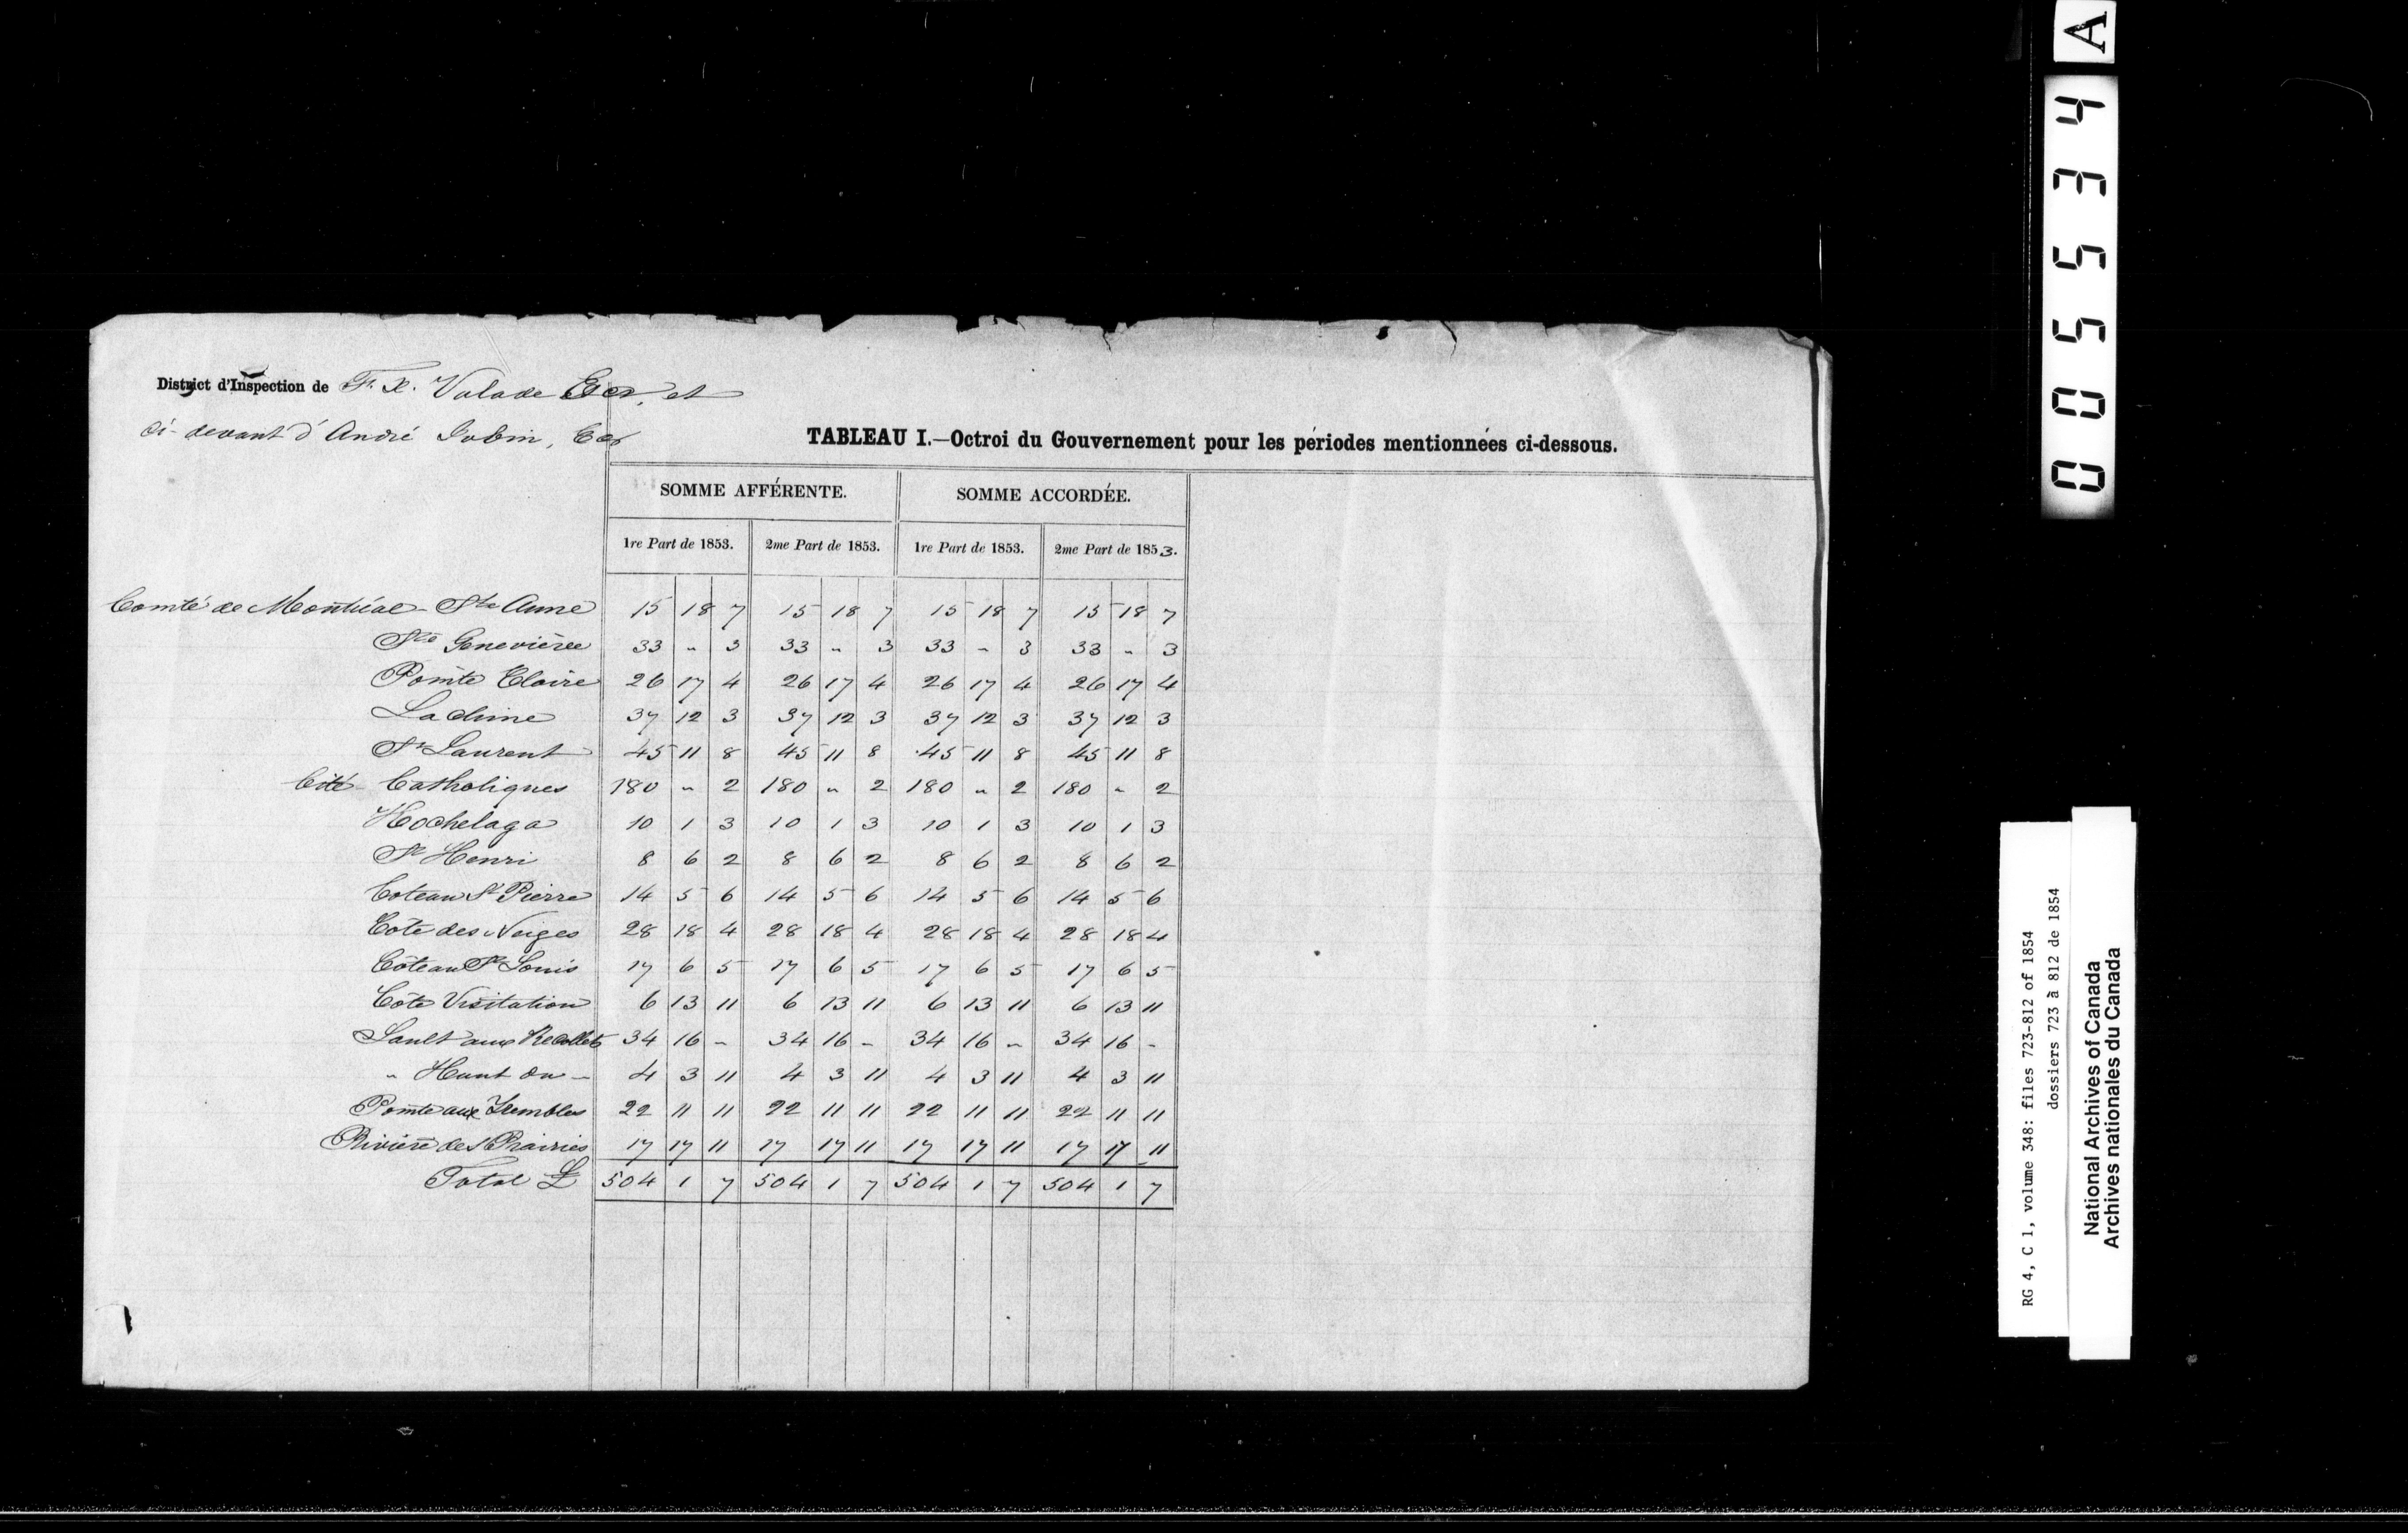 District d'Inspection de F. X. Valade Ecr. et
ci-devant d'André Jobin, Ecr
TABLEAU I.—Octroi du Gouvernement pour les périodes mentionnées ci-dessous.
SOMME AFFÉRENTE. SOMME ACCORDÉE.
1re Part de 1853. 2me Part de 1853. 1re Part de 1853. 2me Part de 1853.
Comté de Montréal - Ste Anne 15 18 7 15 18 7 15 18 7 15 18 7
Ste Geneviève 33 " 3 33 " 3 33 " 3 33 " 3
Pointe Claire 26 17 4 26 17 4 26 17 4 26 17 4
Lachine 37 12 3 37 12 3 37 12 3 37 12 3
St Laurent 45 11 8 45 11 8 45 11 8 45 11 8
Cité - Catholiques 180 " 2 180 " 2 180 " 2 180 " 2
Hochelaga 10 1 3 10 1 3 10 1 3 10 1 3
St Henri 8 6 2 8 6 2 8 6 2 8 6 2
Coteau St Pierre 14 5 6 14 5 6 14 5 6 14 5 6
Côte des Neiges 28 18 4 28 18 4 28 18 4 28 18 4
Côteau St Louis 17 6 5 17 6 5 17 6 5 17 6 5
Côte Visitation 6 13 11 6 13 11 6 13 11 6 13 11
Sault aux Recollets 34 16 " 34 16 " 34 16 " 34 16 "
" Haut du - 4 3 11 4 3 11 4 3 11 4 3 11
Pointe aux Trembles 22 11 11 22 11 11 22 11 11 22 11 11
Rivière des Prairies 17 17 11 17 17 11 17 17 11 17 17 11
Total £ 504 1 7 504 1 7 504 1 7 504 1 7
005534 A
RG 4, C 1, volume 348: files 723-812 of 1854
dossiers 723 à 812 de 1854
National Archives of Canada
Archives nationales du Canada